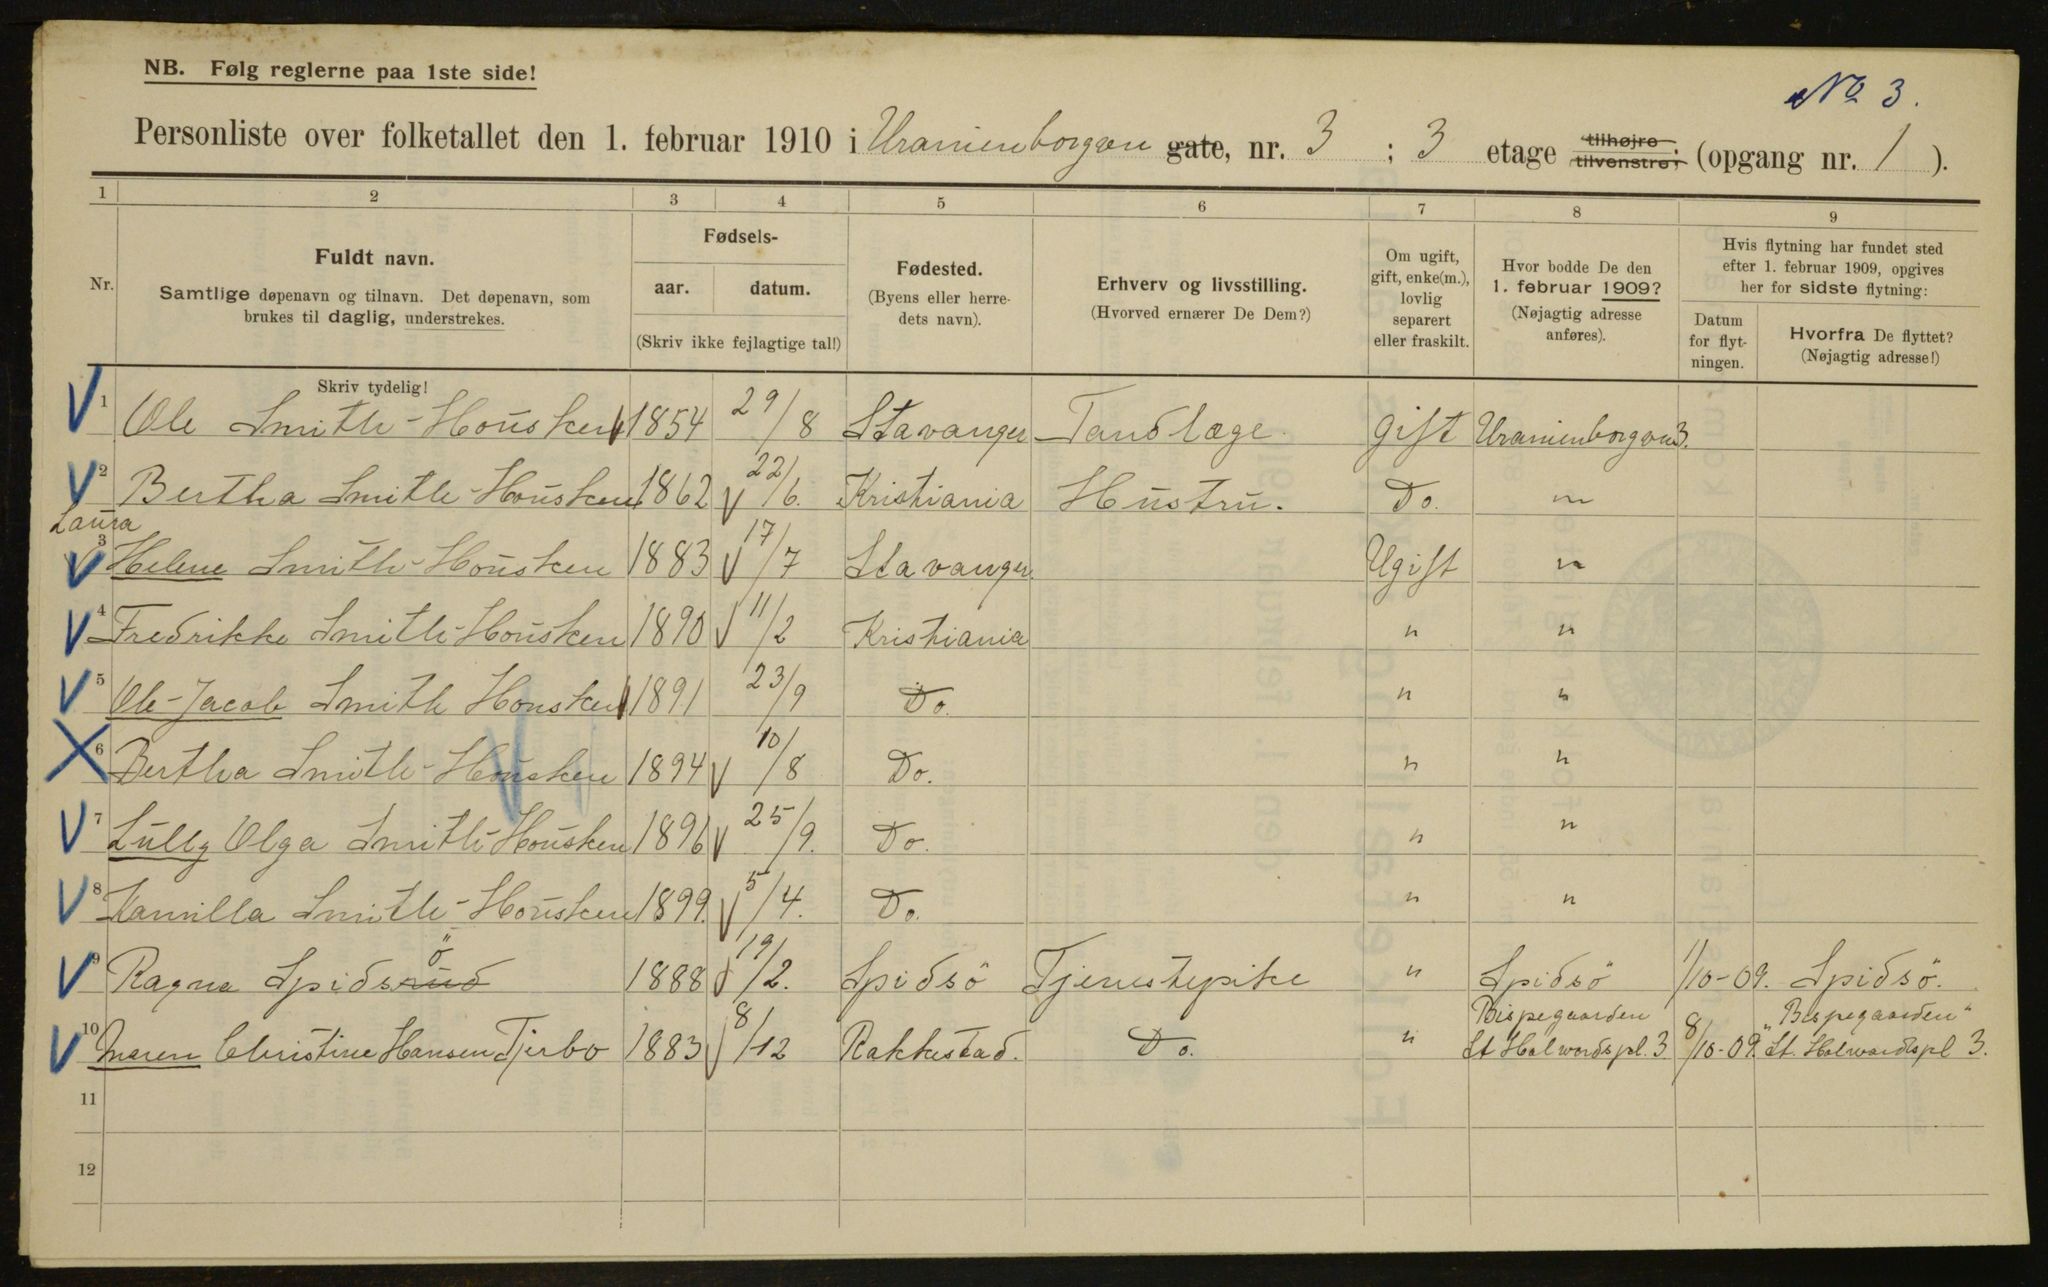 NB. Følg reglerne paa 1ste side!
No 3.
Personliste over folketallet den 1. februar 1910 i Uranienborgvn gate, nr. 3 ; 3 etage tilhøjre tilvenstre; (opgang nr. 1 ).
1 2 3 4 5 6 7 8 9
Nr.
Fuldt navn.
Samtlige døpenavn og tilnavn. Det døpenavn, som
brukes til daglig, understrekes.
Skriv tydelig!
Fødsels-
aar. datum.
(Skriv ikke fejlagtige tal!)
Fødested.
(Byens eller herre-
dets navn).
Erhverv og livsstilling.
(Hvorved ernærer De Dem?)
Om ugift,
gift, enke(m.),
lovlig
separert
eller fraskilt.
Hvor bodde De den
1. februar 1909?
(Nøjagtig adresse
anføres).
Hvis flytning har fundet sted
efter 1. februar 1909, opgives
her for sidste flytning:
Datum
for flyt-
ningen.
Hvorfra De flyttet?
(Nøjagtig adresse!)
1 Ole Smith-Housken 1854 29/8 Stavanger Tandlæge. gift Uranienborgvn 3.
2 Bertha Smith-Housken 1862 22/6. Kristiania Hustru. Do. "
Laura
3 Helene Smith-Housken 1883 17/7 Stavanger. Ugift "
4 Fredrikke Smith-Housken 1890 11/2 Kristiania " "
5 Ole-Jacob Smith Housken 1891 23/9 Do. " "
6 Bertha Smith-Housken 1894 10/8 Do. " "
7 Lully Olga Smith-Housken 1896 25/9. Do. " "
8 Kamilla Smith-Housken 1899. 5/4. Do. " "
ö
9 Ragna Spidsrud 1888 19/2. Spidsö Tjenestepike " Spidsö 1/10-09. Spidsö.
Bispegaarden "Bispegaarden"
10 Maren Christine Hansen Tjerbo 1883 8/12 Rakkestad. Do. " St Halvordspl. 3 8/10-09. St. Halvordspl 3.
11
12